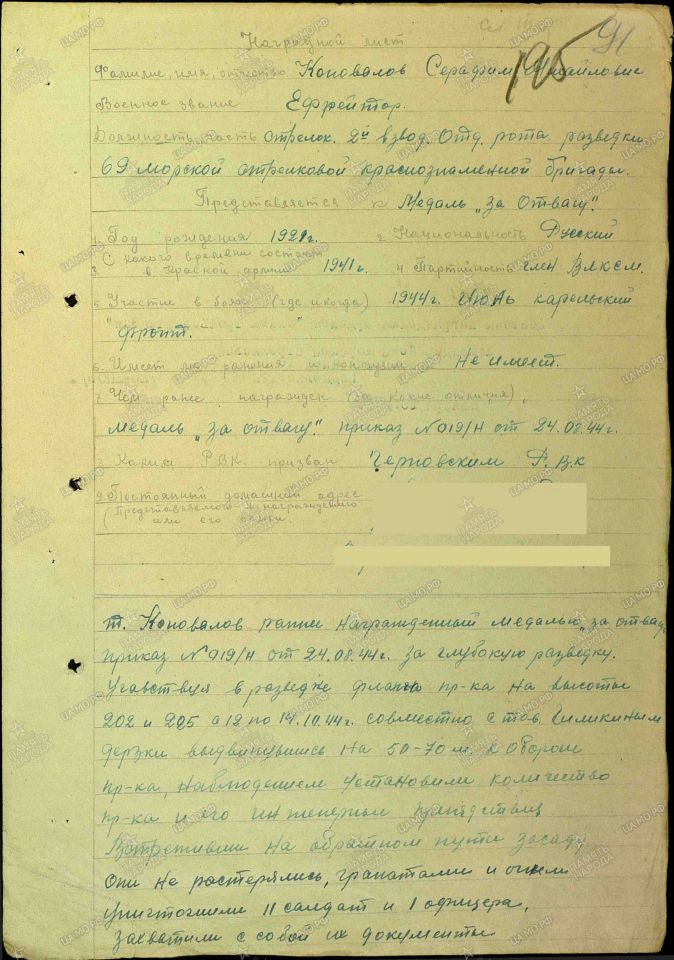 91
195
Наградной лист
Фамилие, имя, отчество Коновалов Серафим Михайлович
Военное звание Ефрейтор.
Должность, часть стрелок. 2й взвод. Отд. рота разведки
69 морской стрелковой краснознаменной бригады.
Представляется к Медаль "за Отвагу".
1. Год рождения 1921г. 2. Национальность Русский
3 С какого времени состоит
в Красной армии 1941г. 4 Партийность член ВЛКСМ.
5. Участие в боях (где и когда) 1944г. Июнь карельский
фронт.
6. Имеет ли ранения и контузии Не имеет.
7. Чем ранее награжден (за какие отличия),
Медаль "за отвагу". приказ №019/Н от 24.08.44г.
8 Каким РВК призван Черновским Р.В.К
9. Постоянный домашний адрес
(Представляемого к награждению
или его семьи.
т. Коновалов ранее награжденный медалью "за отвагу
приказ №019/Н от 24.08.44г. за глубокую разведку.
Учавствуя в разведке фланга пр-ка на высоты
202 и 205 с 12 по 14.10.44г. совместно с тов.
дерзки выдвинувшись на 50-70 м. к обороне
пр-ка, наблюдением установили количество
пр-ка и его инженерные
Встретивши на обратном пути засаду
они не растерялись, гранатами и огнем
уничтожили 11 салдат и 1 офицера,
захватили с собой их документы